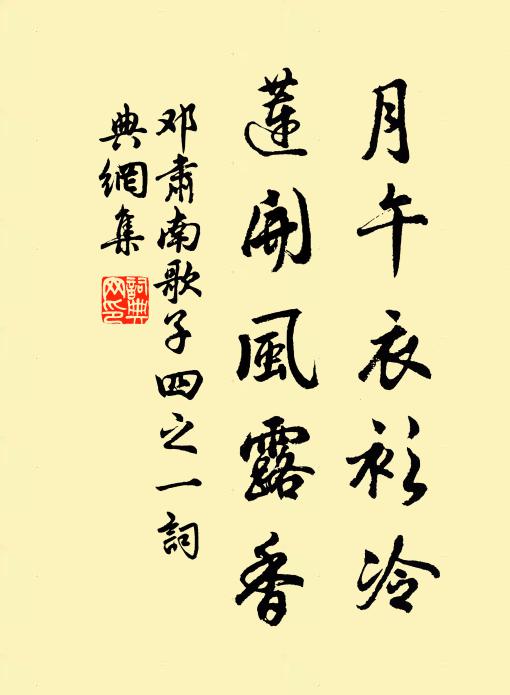 月午衣衫冷
蓮開風露香
邓肅南歌子四之一詞
典網集
詞典
网印